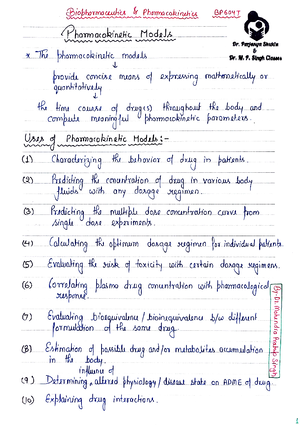 Biopharmaceutics & Pharmacokinetics BP604T
Pharmacokinetic Models
Dr. Puspraja Shukla
&
Dr. M. P. Singh Classes
* The pharmacokinetic models
↓
provide concise means of expressing mathematically or
quantitatively
↓
the time course of drug(s) throughout the body and
compute meaningful pharmacokinetic parameters.
Uses of Pharmacokinetic Models:-
(1) Characterizing the behavior of drug in patients.
(2) Predicting the concentration of drug in various body
fluids with any dosage regimen.
(3) Predicting the multiple dose concentration curves from
single dose experiments.
(4) Calculating the optimum dosage regimen for individual patients.
(5) Evaluating the risk of toxicity with certain dosage regimens.
(6) Correlating plasma drug concentration with pharmacological
response.
(7) Evaluating bioequivalence / bioinequivalence b/w different
formulation of the same drug.
(8) Estimation of possible drug and/or metabolites accumulation
in the body.
influence of
(9) Determining altered physiology / disease state on ADME of drug.
(10) Explaining drug interactions.
By:- Dr. Mahendra Pratap Singh